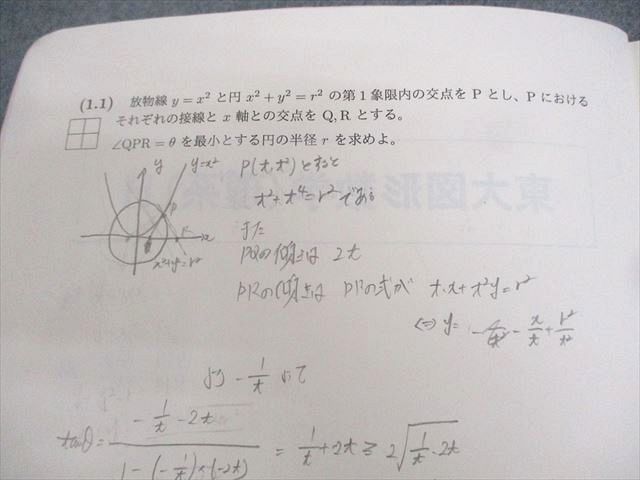 (1.1) 放物線 y = x² と円 x² + y² = r² の第1象限内の交点を P とし、P における
それぞれの接線と x 軸との交点を Q, R とする。
∠QPR = θ を最小とする円の半径 r を求めよ。
y
y=x²
P
R
x
x²+y²=r²
P(t,t²)とすると
t²+t⁴=r²である
また
PQの傾きは 2t
PRの傾きは PRの式が t·x+t²y=r²
⇔ y= -x/t + r²/t²
より -1/t よって
tanθ = (-1/t - 2t) / (1-(-1/t)×(-2t)) = 1/t+2t ≧ 2√(1/t · 2t)